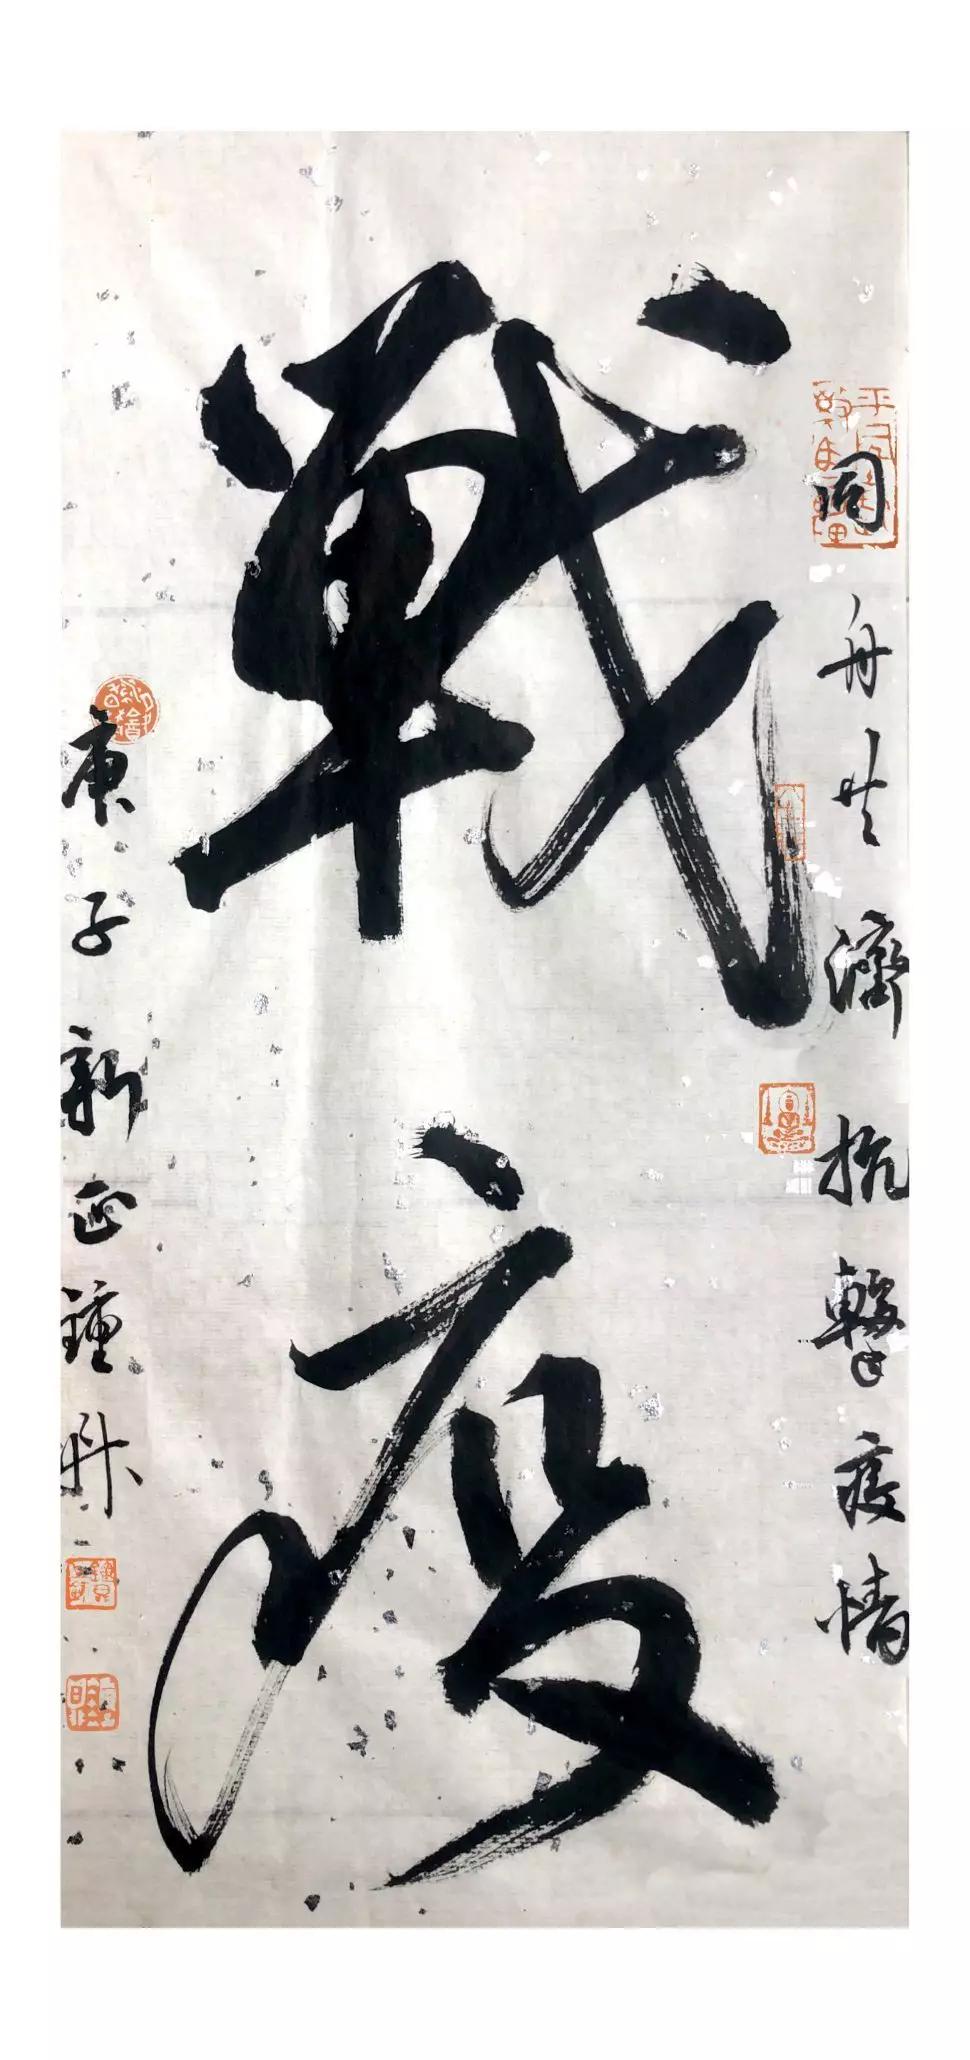 同舟共濟抗擊疫情
戰疫
庚子新正鍾